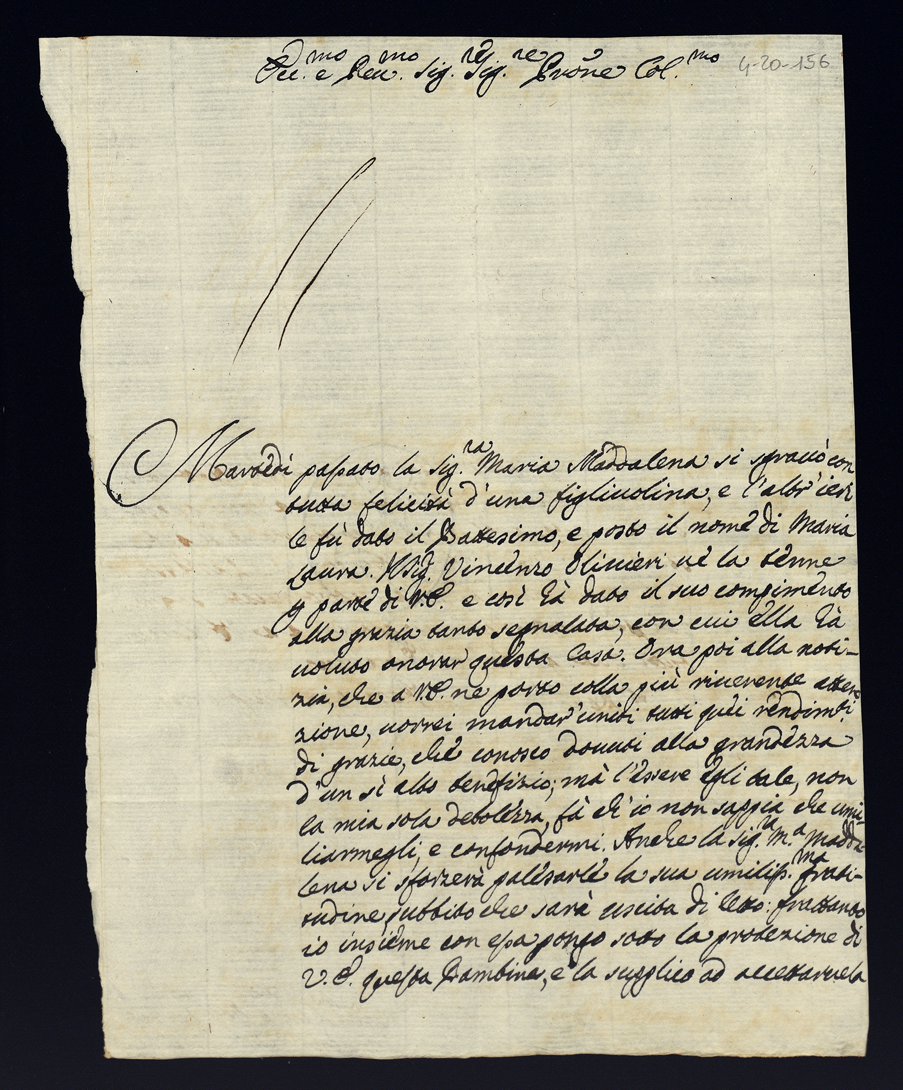 Ecc.mo e Rev.mo Sig.re Sig.re Prone Col.mo
4-20-156
Martedì passato la Sig.ra Maria Maddalena si sgravò con
tutta felicità d'una figliuolina, e l'altr'ieri
le fù dato il Battesimo, e posto il nome di Maria
Laura. Il Sig. Vincenzo Olivieri ve la tenne
p parte di V.E. e così hà dato il suo compimento
alla grazia tanto segnalata, con cui ella hà
voluto onorar questa Casa. Ora poi alla noti-
zia, che a V.E. ne porto colla più riverente atten-
zione, vorrei mandar'uniti tutti quei rendim.ti
di grazie, che conosco dovuti alla grandezza
d'un sì alto benefizio; mà l'essere egli tale, non
la mia sola debolezza, fà ch'io non sappia che umi-
liarmegli, e confondermi. Anche la Sig.ra M.a Madda
lena si sforzerà palesarle la sua umiliss.ma grati-
tudine subbito che sarà uscita di letto: frattanto
io insieme con essa pongo sotto la protezione di
V.E. questa Bambina, e la supplico ad accettarvela